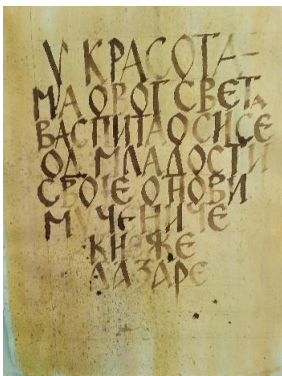 У КРАСОТА-
МА ОВОГ СВЕТА
ВАСПИТАО СИ СЕ
ОД МЛАДОСТИ
СВОЈЕ О НОВИ
МУЧЕНИЧЕ
КНЕЖЕ
ЛАЗАРЕ